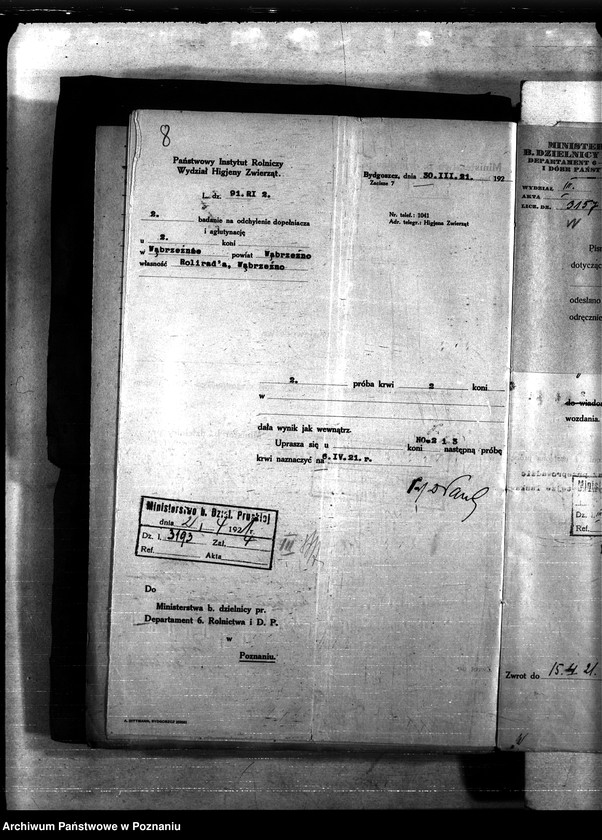 8
Państwowy Instytut Rolniczy
Wydział Higjeny Zwierząt.
L. dz. 91.RI 2.
Bydgoszcz, dnia 30.III.21. 192
Zacisze 7
Nr. telef.: 1041
Adr. telegr.: Higjena Zwierząt
2. badanie na odchylenie dopełniacza
i aglutynację
u 2. koni
w Wąbrzeźnie powiat Wąbrzeźno
własność Rolirad'a, Wąbrzeźno
2. próba krwi 2 koni
w
dała wynik jak wewnątrz.
Uprasza się u koni No.2 i 3 następną próbę
krwi naznaczyć na 6.IV.21.r.
Ministerstwo b. Dziel. Pruskiej
dnia 21/4 1921 r.
Dz. l. 3193 Zał. 4
Ref. Akta
Do
Ministerstwa b. dzielnicy pr.
Departament 6. Rolnictwa i D. P.
w
Poznaniu.
A. DITTMANN, BYDGOSZCZ
MINISTER
B. DZIELNICY
DEPARTAMENT 6
I DÓBR PAŃST
WYDZIAŁ III.
AKTA
LICZ. DZ. 3157
Pis
dotycząc
odesłano
odręcznie
do wiadom
wozdania.
Dz. l.
Ref.
Zwrot do 15.4.21.
Archiwum Państwowe w Poznaniu